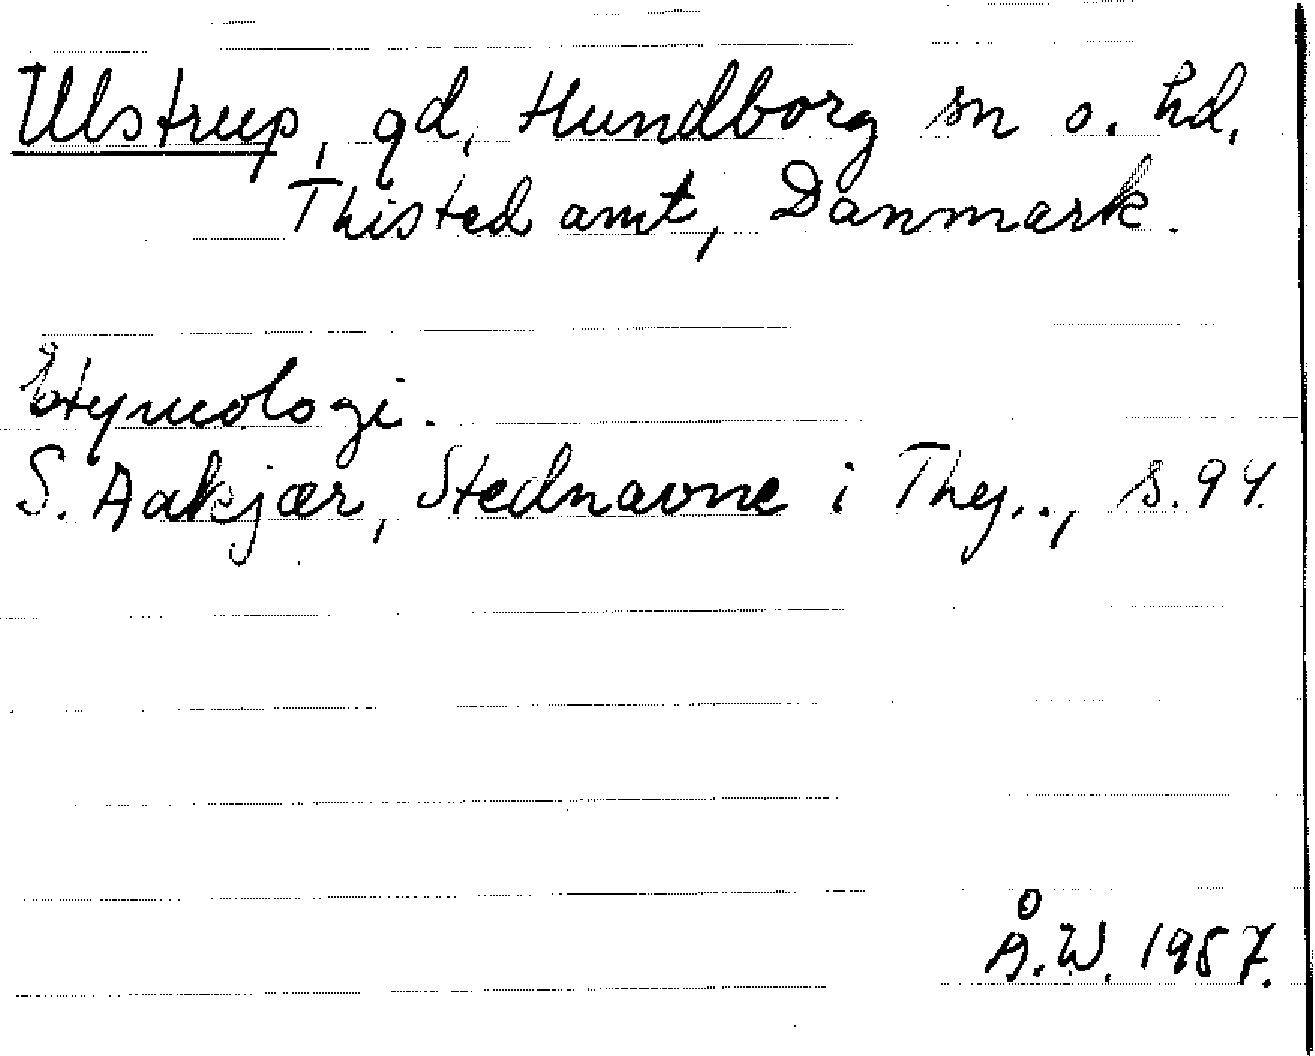 Ulstrup, gd, Hundborg sn o. hd,
Thisted amt, Danmark.
Etymologi.
S. Aakjær, Stednavne i Thy.., s. 94.
Å.W. 1987.